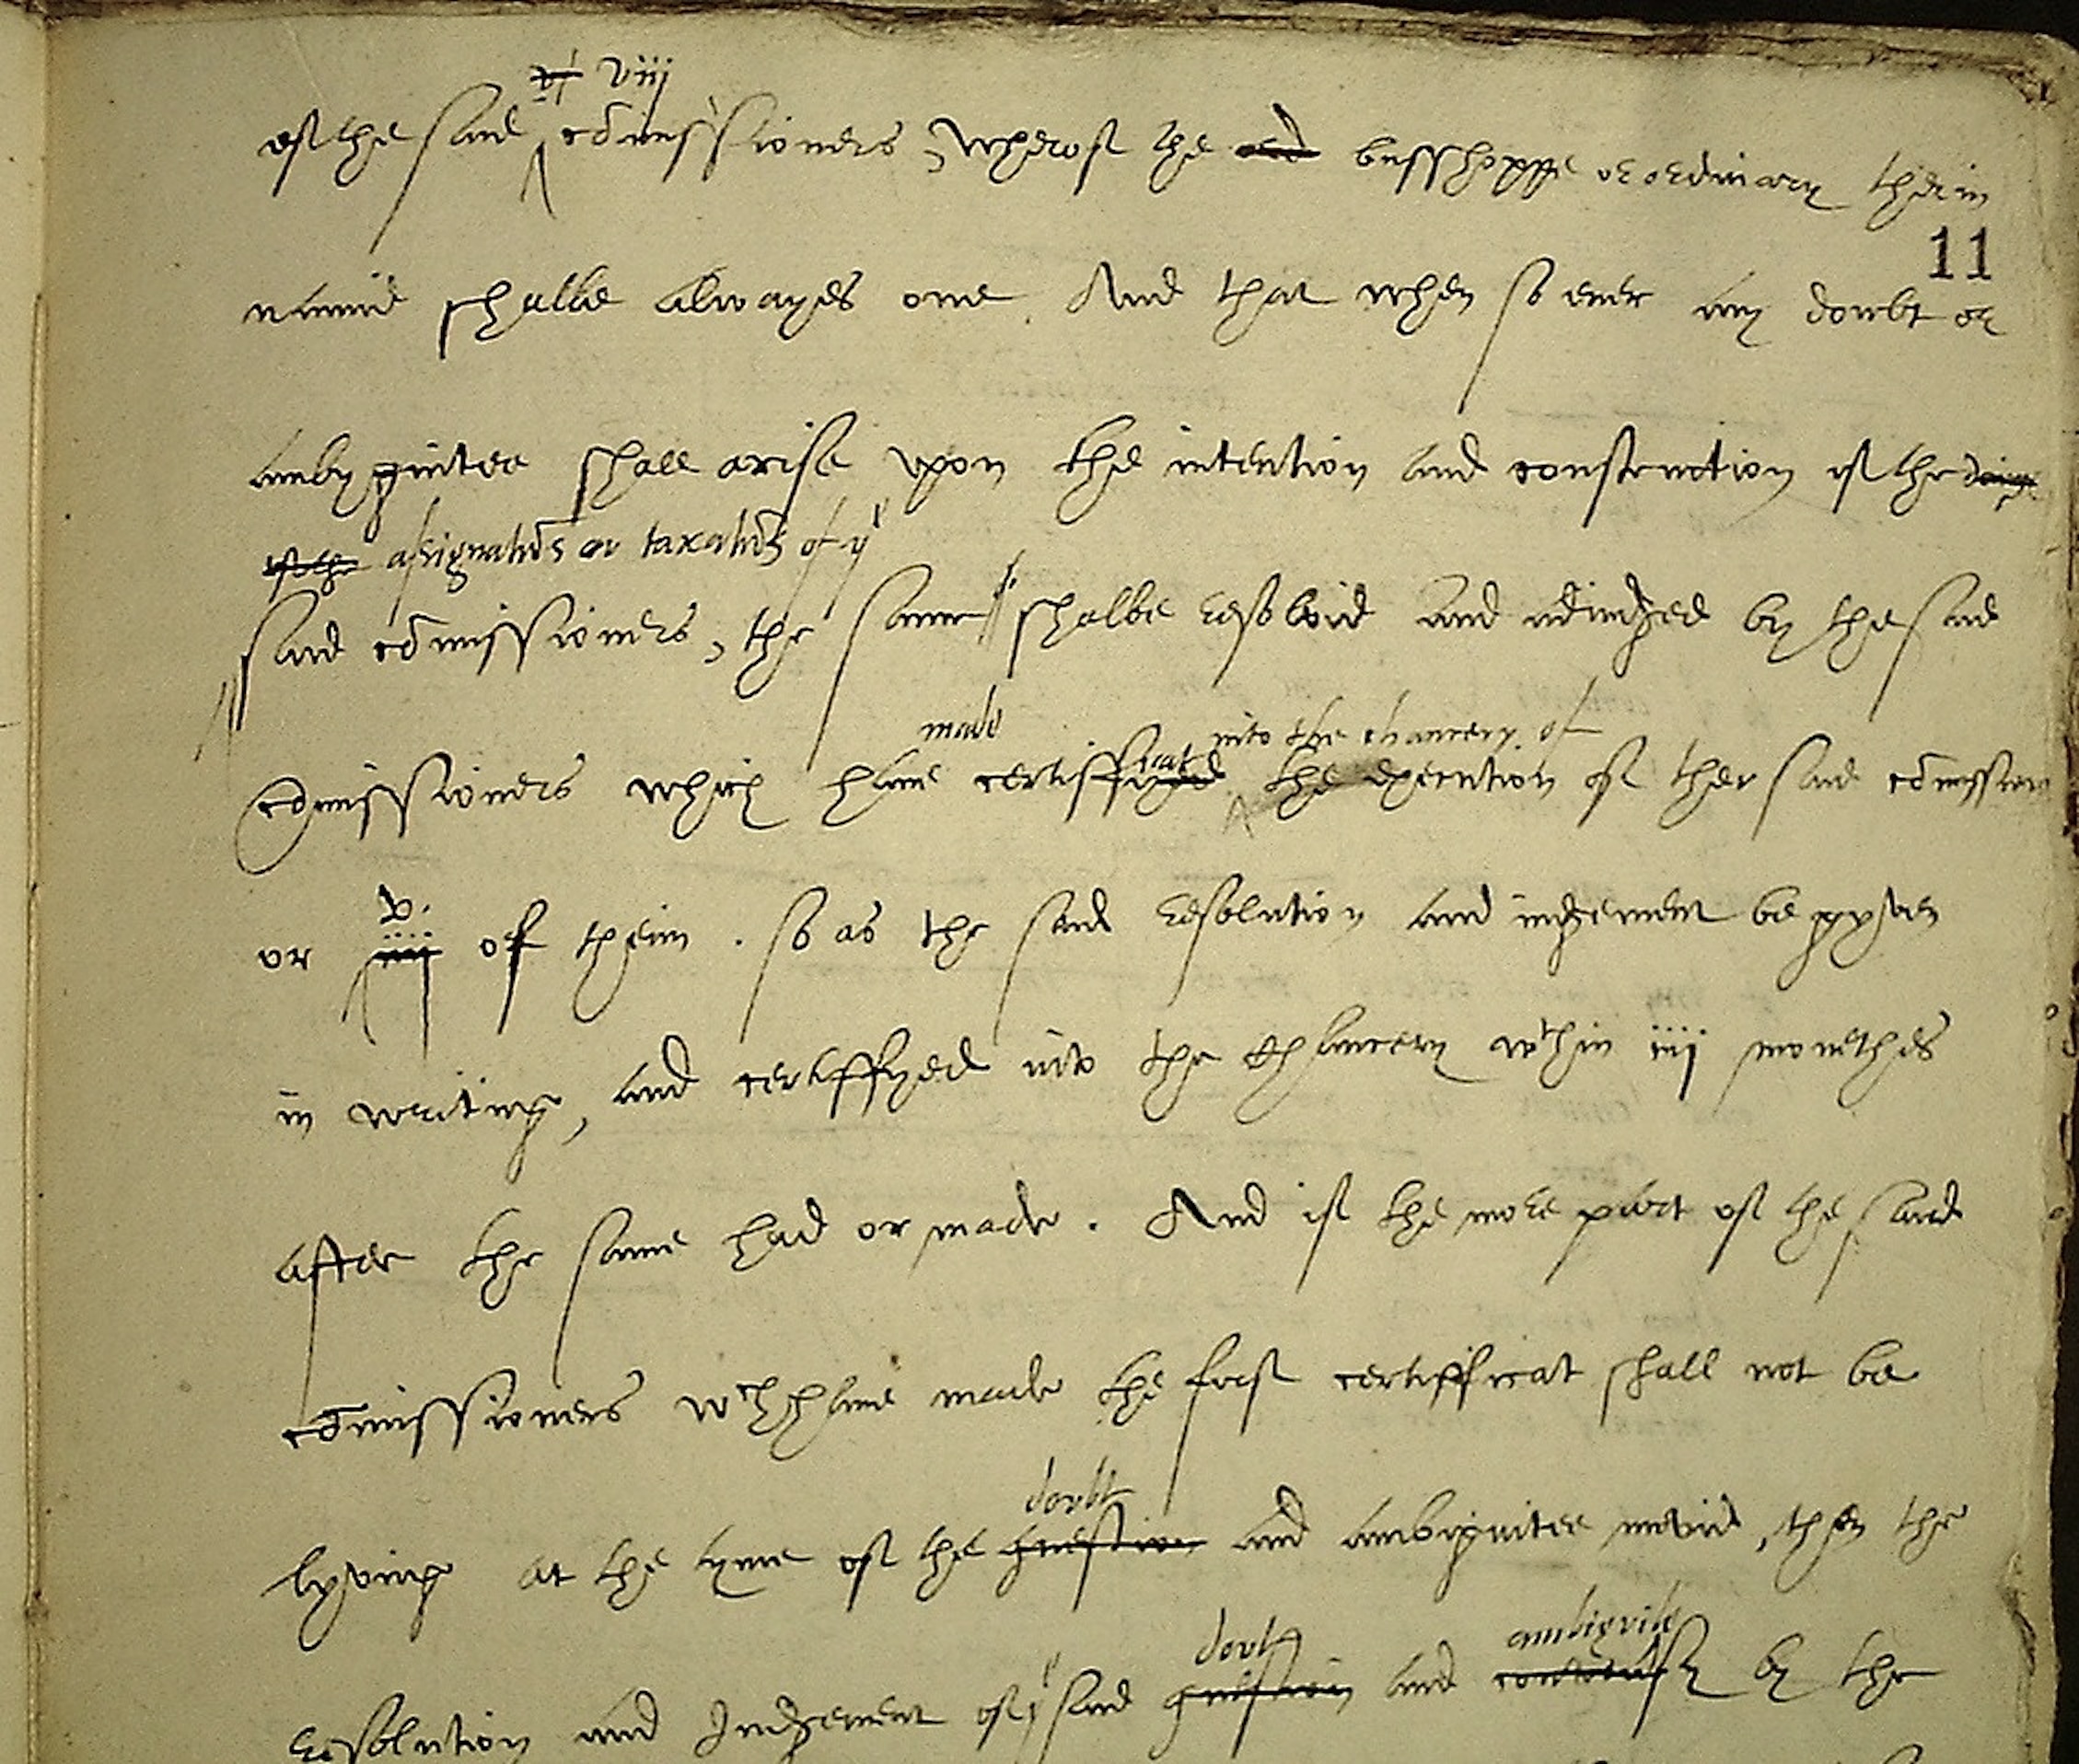 vj viij
of the said cōmissioners, wherof the and busshoppe or ordinary therin
11
namid shalbe alwayes one. And that when so ever any doubt or
ambyguitee shall arise upon the intention and construction of the
of the assignatiōs or taxatiōs of yᵉ
said cōmissioners, the same shalbe resolvid and adiudged by the said
made into the chauncery of
cōmissioners which have certiffyed cat the execution of ther said cōmission
v.
or iiij of theim. so as the said resolution and iudgement be gyven
in writing, and certiffyed into the Chauncery wᵗhin iiij monethes
after the same had or made. And if the more part of the said
cōmissioners wᶜh have made the first certifficat shall not be
doubt
lyving at the tyme of the question and ambiguitee movid, then the
doubt ambiguite
resolution and Judgement of yᵉ said question and by the